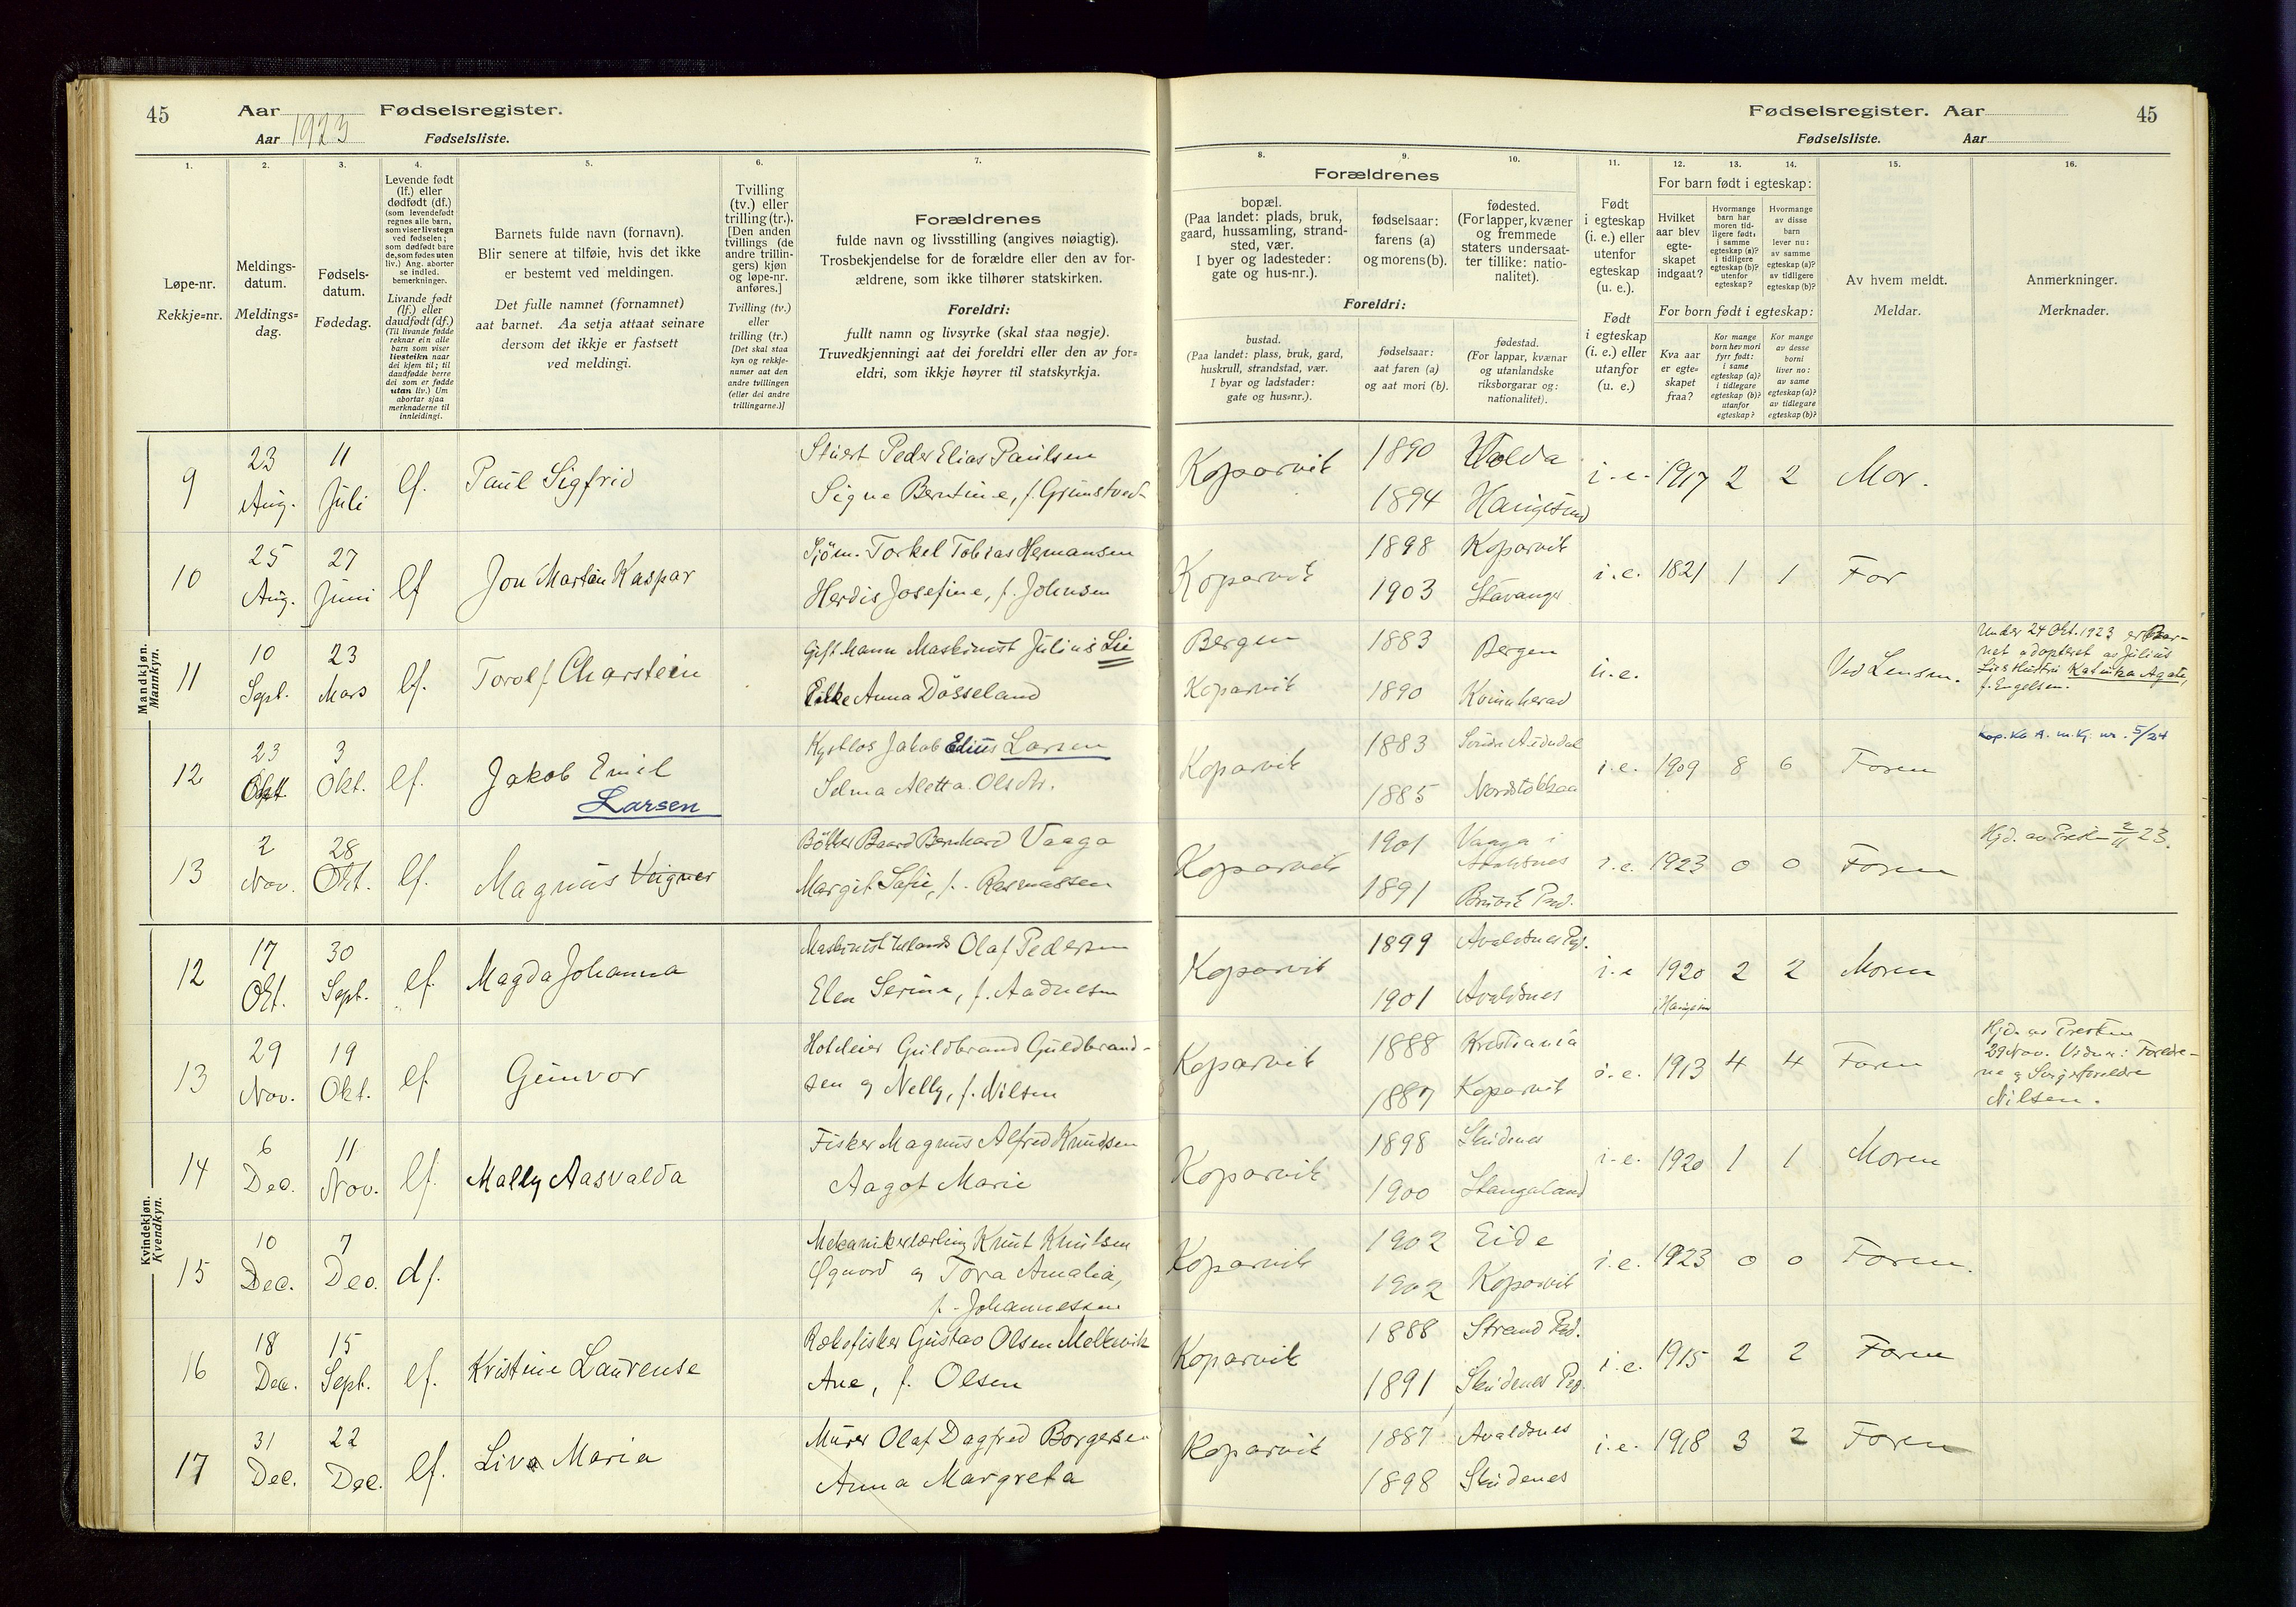 45 Aar 1923 Fødselsregister.
Aar Fødselsliste.
1. 2. 3. 4. 5. 6. 7.
Løpe-nr.
Rekkje=nr.
Meldings-
datum.
Meldings=
dag.
Fødsels-
datum.
Fødedag.
Levende født
(lf.) eller
dødfødt (df.)
(som levendefødt
regnes alle barn,
som viser livstegn
ved fødselen;
som dødfødt bare
de, som fødes uten
liv.) Ang. aborter
se indled.
bemerkninger.
Livande født
(lf.) eller
daudfødt (df.)
(Til livande fødde
reknar ein alle
barn som viser
livsteikn naar
dei kjem til; til
daudfødde berre
dei som er fødde
utan liv.) Um
abortar sjaa
merknaderne til
innleidingi.
Barnets fulde navn (fornavn).
Blir senere at tilføie, hvis det ikke
er bestemt ved meldingen.
Det fulle namnet (fornamnet)
aat barnet. Aa setja attaat seinare
dersom det ikkje er fastsett
ved meldingi.
Tvilling
(tv.) eller
trilling (tr.).
[Den anden
tvillings (de
andre trillin-
gers) kjøn
og løpe-nr.
anføres.]
Tvilling (tv.)
eller
trilling (tr.)
[Det skal staa
kyn og rekkje-
numer aat den
andre tvillingen
(eller dei andre
trillingarne.)]
Forældrenes
fulde navn og livsstilling (angives nøiagtig).
Trosbekjendelse for de forældre eller den av for-
ældrene, som ikke tilhører statskirken.
Foreldri:
fullt namn og livsyrke (skal staa nøgje).
Truvedkjenningi aat dei foreldri eller den av for=
eldri, som ikkje høyrer til statskyrkja.
Fødselsregister. Aar 45
Fødselsliste. Aar
8. 9. 10. 11. 12. 13. 14. 15. 16.
Forældrenes
bopæl.
(Paa landet: plads, bruk,
gaard, hussamling, strand-
sted, vær.
I byer og ladesteder:
gate og hus-nr.).
fødselsaar:
farens (a)
og morens (b).
fødested.
(For lapper, kvæner
og fremmede
staters undersaat-
ter tillike: natio-
nalitet).
Foreldri:
bustad.
(Paa landet: plass, bruk, gard,
huskrull, strandstad, vær.
I byar og ladstader:
gate og hus=nr.).
fødselsaar:
aat faren (a)
og aat mori (b).
fødestad.
(For lappar, kvænar
og utanlandske
riksborgarar og:
nationalitet).
Født
i egteskap
(i. e.) eller
utenfor
egteskap
(u. e.).
Født
i egteskap
(i. e.) eller
utanfor
(u. e.)
For barn født i egteskap:
Hvilket
aar blev
egte-
skapet
indgaat?
Hvormange
barn har
moren tid-
ligere født:
i samme
egteskap (a)?
i tidligere
egteskap (b)?
utenfor
egteskap?
Hvormange
av disse
barn
lever nu:
av samme
egteskap (a)?
av tidligere
egteskap (b)?
For born født i egteskap:
Kva aar
er egte=
skapet
fraa?
Kor mange
born hev mori
fyrr født:
i same
egteskap (a)?
i tidlegare
egteskap (b)?
utanfor
egteskap?
Kor mange
av desse
borni
liver no:
av same
egteskap (a)?
av tidlegare
egteskap (b)?
Av hvem meldt.
Meldar.
Anmerkninger.
Merknader.
Mandkjøn.
Mannkyn.
9 23 Aug. 11 Juli lf. Paul Sigfrid Peder Elias Paulsen
Signe Berntine, f. Grimstved
Koparvik 1890 1894 Haugesund i. e. 1917 2 2 Mor.
10 25 Aug. 27 Juni lf Jon Martin Kaspar Sjöm. Torkel Tobias Hermansen
Herdis Josefine, f. Johnsen
Koparvik 1898 Koparvik 1903 Stavanger i. e. 1821 1 1 Far
11 10 Sept. 23 Mars lf. Torolf Charstein Gift mann Maskinist Julius Lie
Anna Dösseland
Bergen 1883 Bergen
Koparvik 1890 Kvinnherad u. e. Ved Lensm.
Under 24 Okt. 1923 er Bar-
net adopteret av Julius
Lie & Hustru Katinka Agate,
f. Engelsen.
12 23 Okt. 3 Okt. lf. Jakob Emil
Larsen
Jakob Edius Larsen
Selma Aletta Olsdtr.
Koparvik 1883 1885 Nordstokkaa i. e. 1909 8 6 Faren
13 2 Nov. 28 Okt. lf. Magnus Vigner Bötker Baard Bernhard Vaaga
Margit Sofie, f. Rasmussen
Koparvik 1901 Vaaga i
Avaldsnes
1891 i. e. 1923 0 0 Faren
Hjd. av Presten 2/11 23.
Kvindekjøn.
Kvendkyn.
12 17 Okt. 30 Sept. lf. Magda Johanna Maskinist Olaf Pedersen
Elen Serine, f. Aadnesen
Koparvik 1899 Avaldsnes Pgd.
1901 Avaldsnes i. e 1920 2 2 Moren
13 29 Nov. 19 Okt. lf Gunvor Hoteleier Guldbrand Guldbrand-
sen og Nelly, f. Nilsen
Koparvik 1888 Kristiania
1887 Koparvik i. e. 1913 4 4 Faren
Hjd. av Presten
29 Nov. Vidner: Foreldre-
ne &
Nilsen.
14 6 Dec. 11 Nov. lf. Mally Aasvalda Fisker Magnus Alfred Knudsen
Aagot Marie
Koparvik 1898 Skudenes
1900 Stangeland i. e. 1920 1 1 Moren
15 10 Dec. 7 Dec. df. Mekanikerlærling Knut Knutsen
og Tora Amalia,
f. Johannessen
Koparvik 1902 Eide
1902 Koparvik i. e. 1923 0 0 Faren.
16 18 Dec. 15 Sept. lf. Kristine Laurense Gustav Olsen Melkevik
Ane, f. Olsen
Koparvik 1888 Strand Pgd.
1891 Skudenes Pgd. i. e. 1915 2 2 Faren
17 31 Dec. 22 Dec. lf. Liva Maria Murer Olaf Dagfred Borgersen
Anna Margreta
Koparvik 1887 Avaldsnes
1898 Skudenes i. e. 1918 3 2 Faren